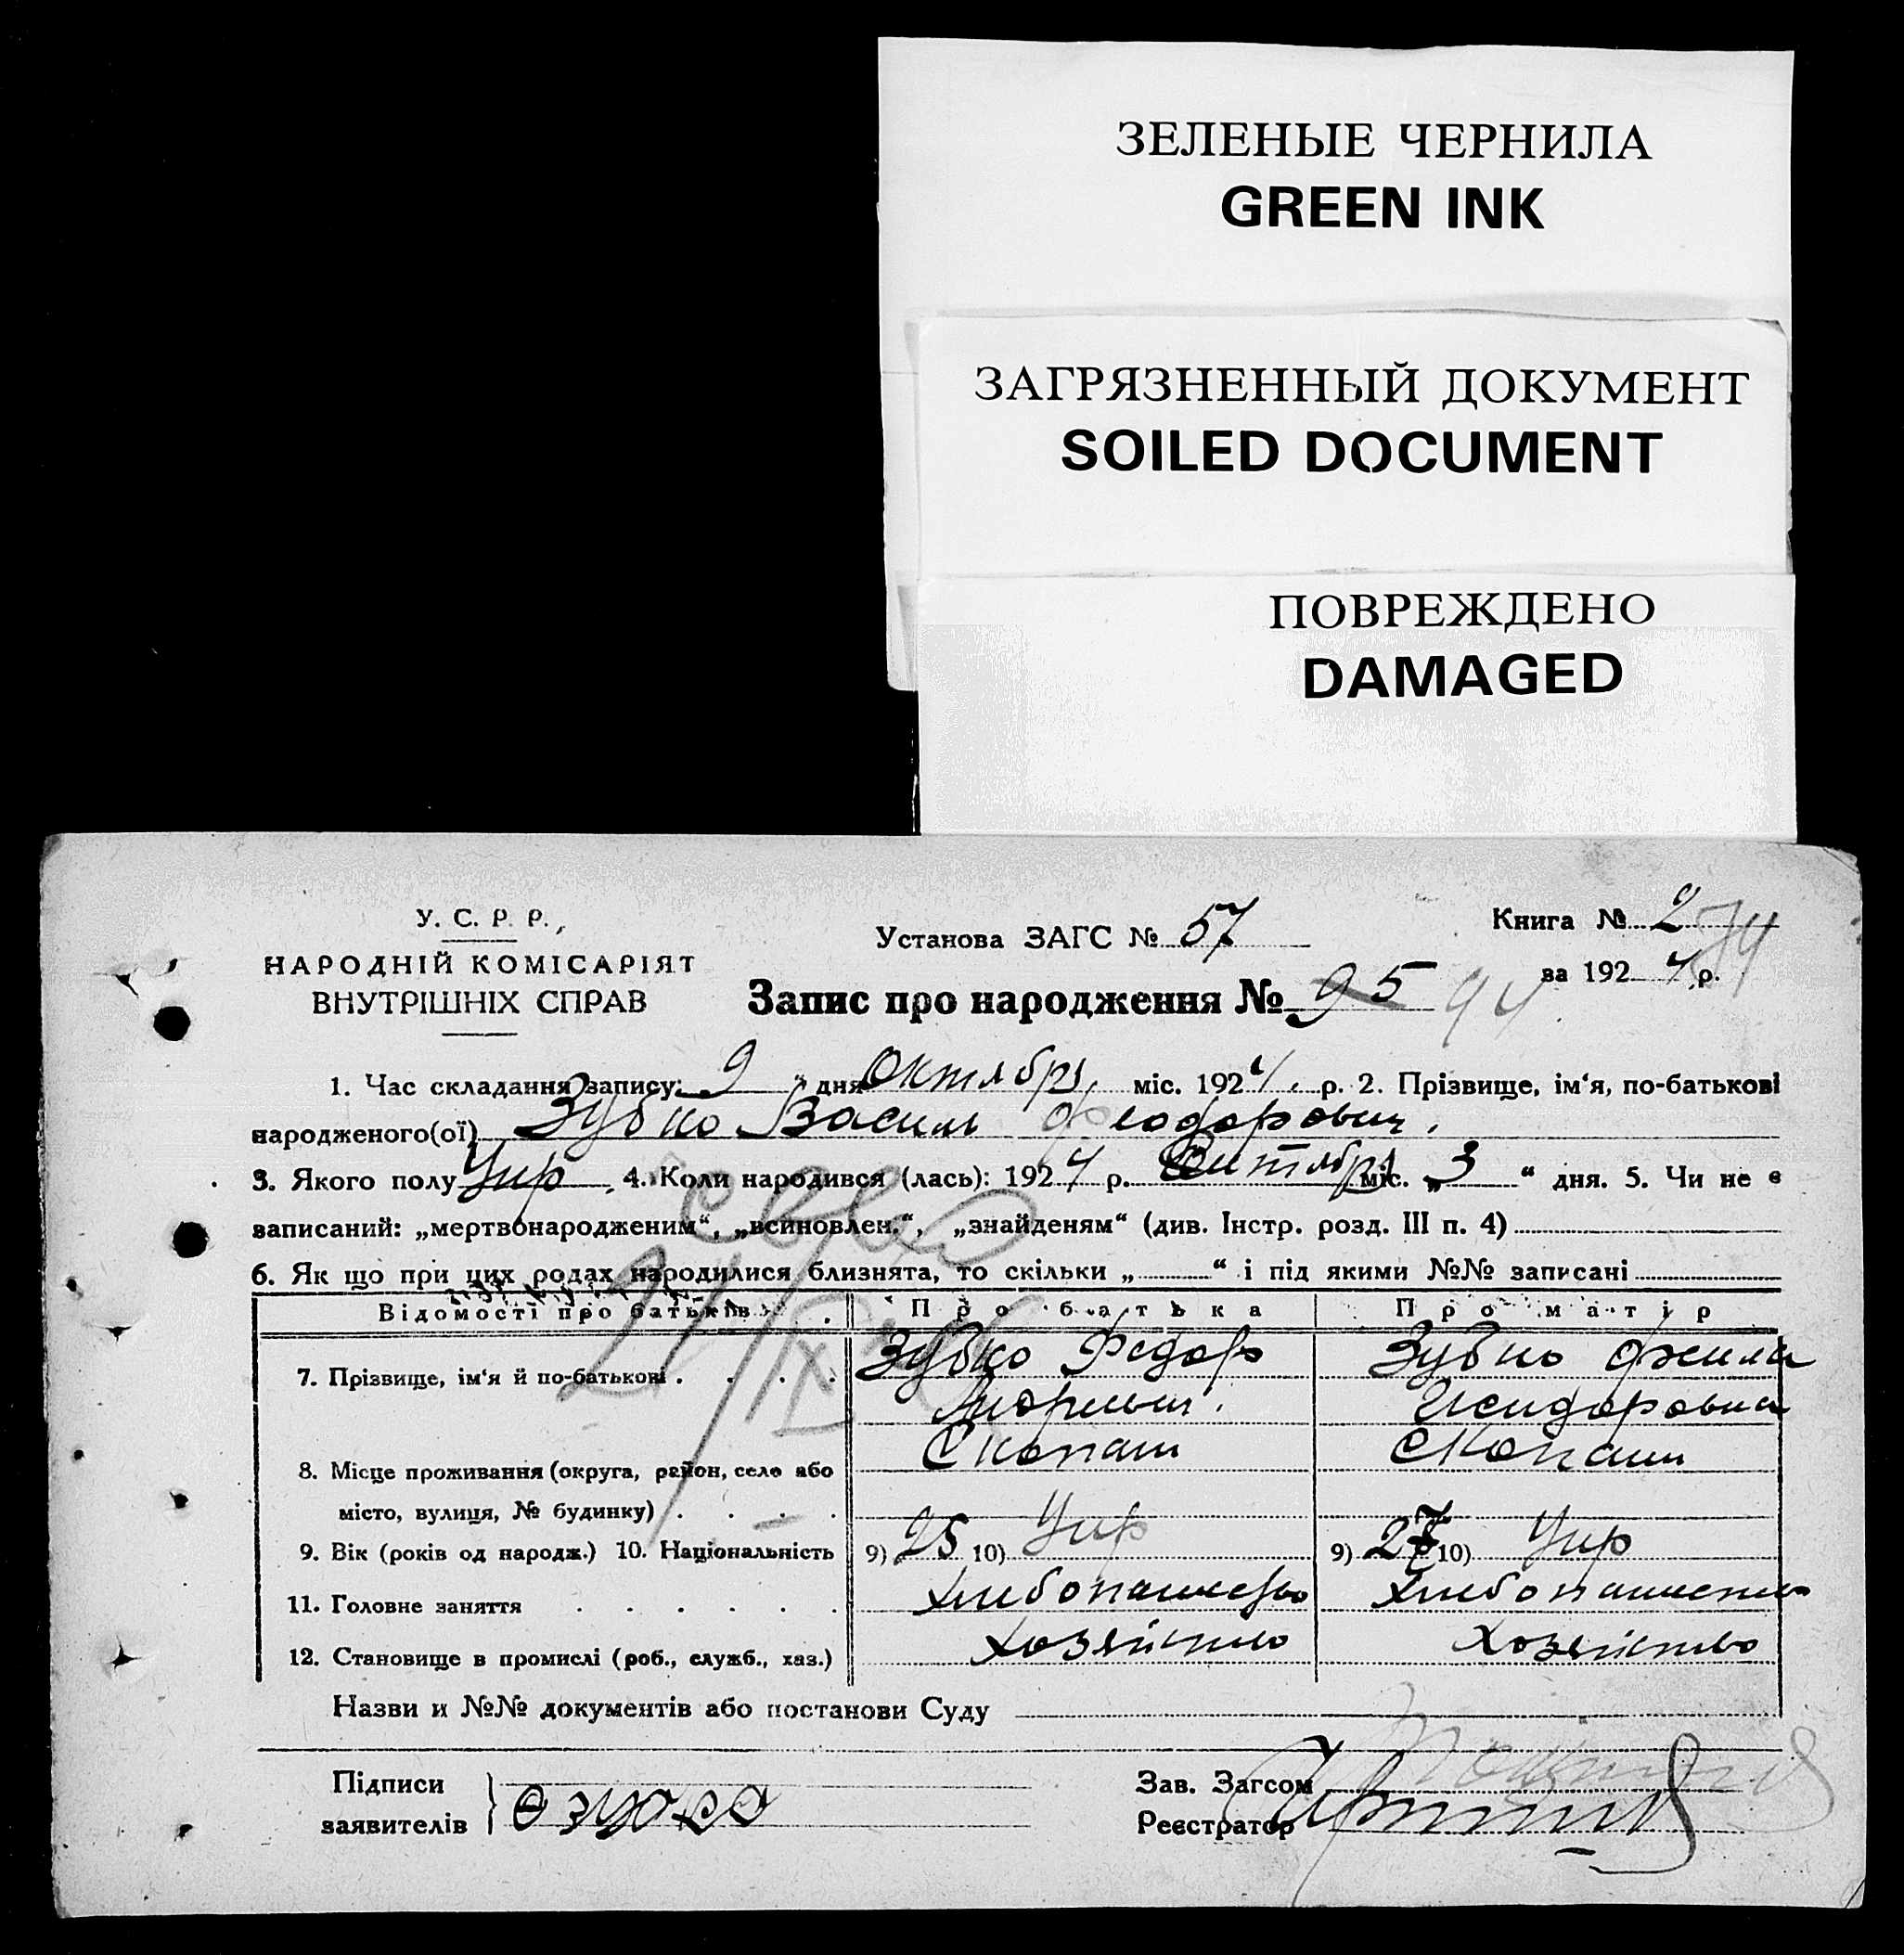 ЗЕЛЕНЫЕ ЧЕРНИЛА
GREEN INK
ЗАГРЯЗНЕННЫЙ ДОКУМЕНТ
SOILED DOCUMENT
ПОВРЕЖДЕНО
DAMAGED
У. С. Р. Р.,
НАРОДНІЙ КОМІСАРІЯТ
ВНУТРІШНІХ СПРАВ
Установа ЗАГС № 57
Книга № 2
за 1924 р.
Запис про народження № 95 94
1. Час складання запису: 9 " дня Октября міс. 1924. р. 2. Прізвище, ім'я, по-батькові
народженого(ої) Зубко Василь Феодорович.
3. Якого полу Чир 4. Коли народився (лась): 1924 р. Октября міс. „ 3 “ дня. 5. Чи не є
записаний: „мертвонародженим“, „всиновлен.“, „знайденям“ (див. Інстр. розд. III п. 4)
6. Як що при цих родах народилися близнята, то скільки „ “ і під якими №№ записані
Відомості про батьків Про батька Про матір
7. Прізвище, ім'я й по-батькові Зубко Федор Зубко
Исидоровна
8. Місце проживання (округа, район, село або Скопаш Скопаш
місто, вулиця, № будинку)
9. Вік (років од народж.) 10. Національність 9) 25 10) Укр 9) 27 10) Укр
11. Головне заняття Хлебопашество Хлебопашество
12. Становище в промислі (роб., служб., хаз.) Хозяйство Хозяйство
Назви и №№ документів або постанови Суду
Підписи
заявителів
Зав. Загсом
Реєстратор